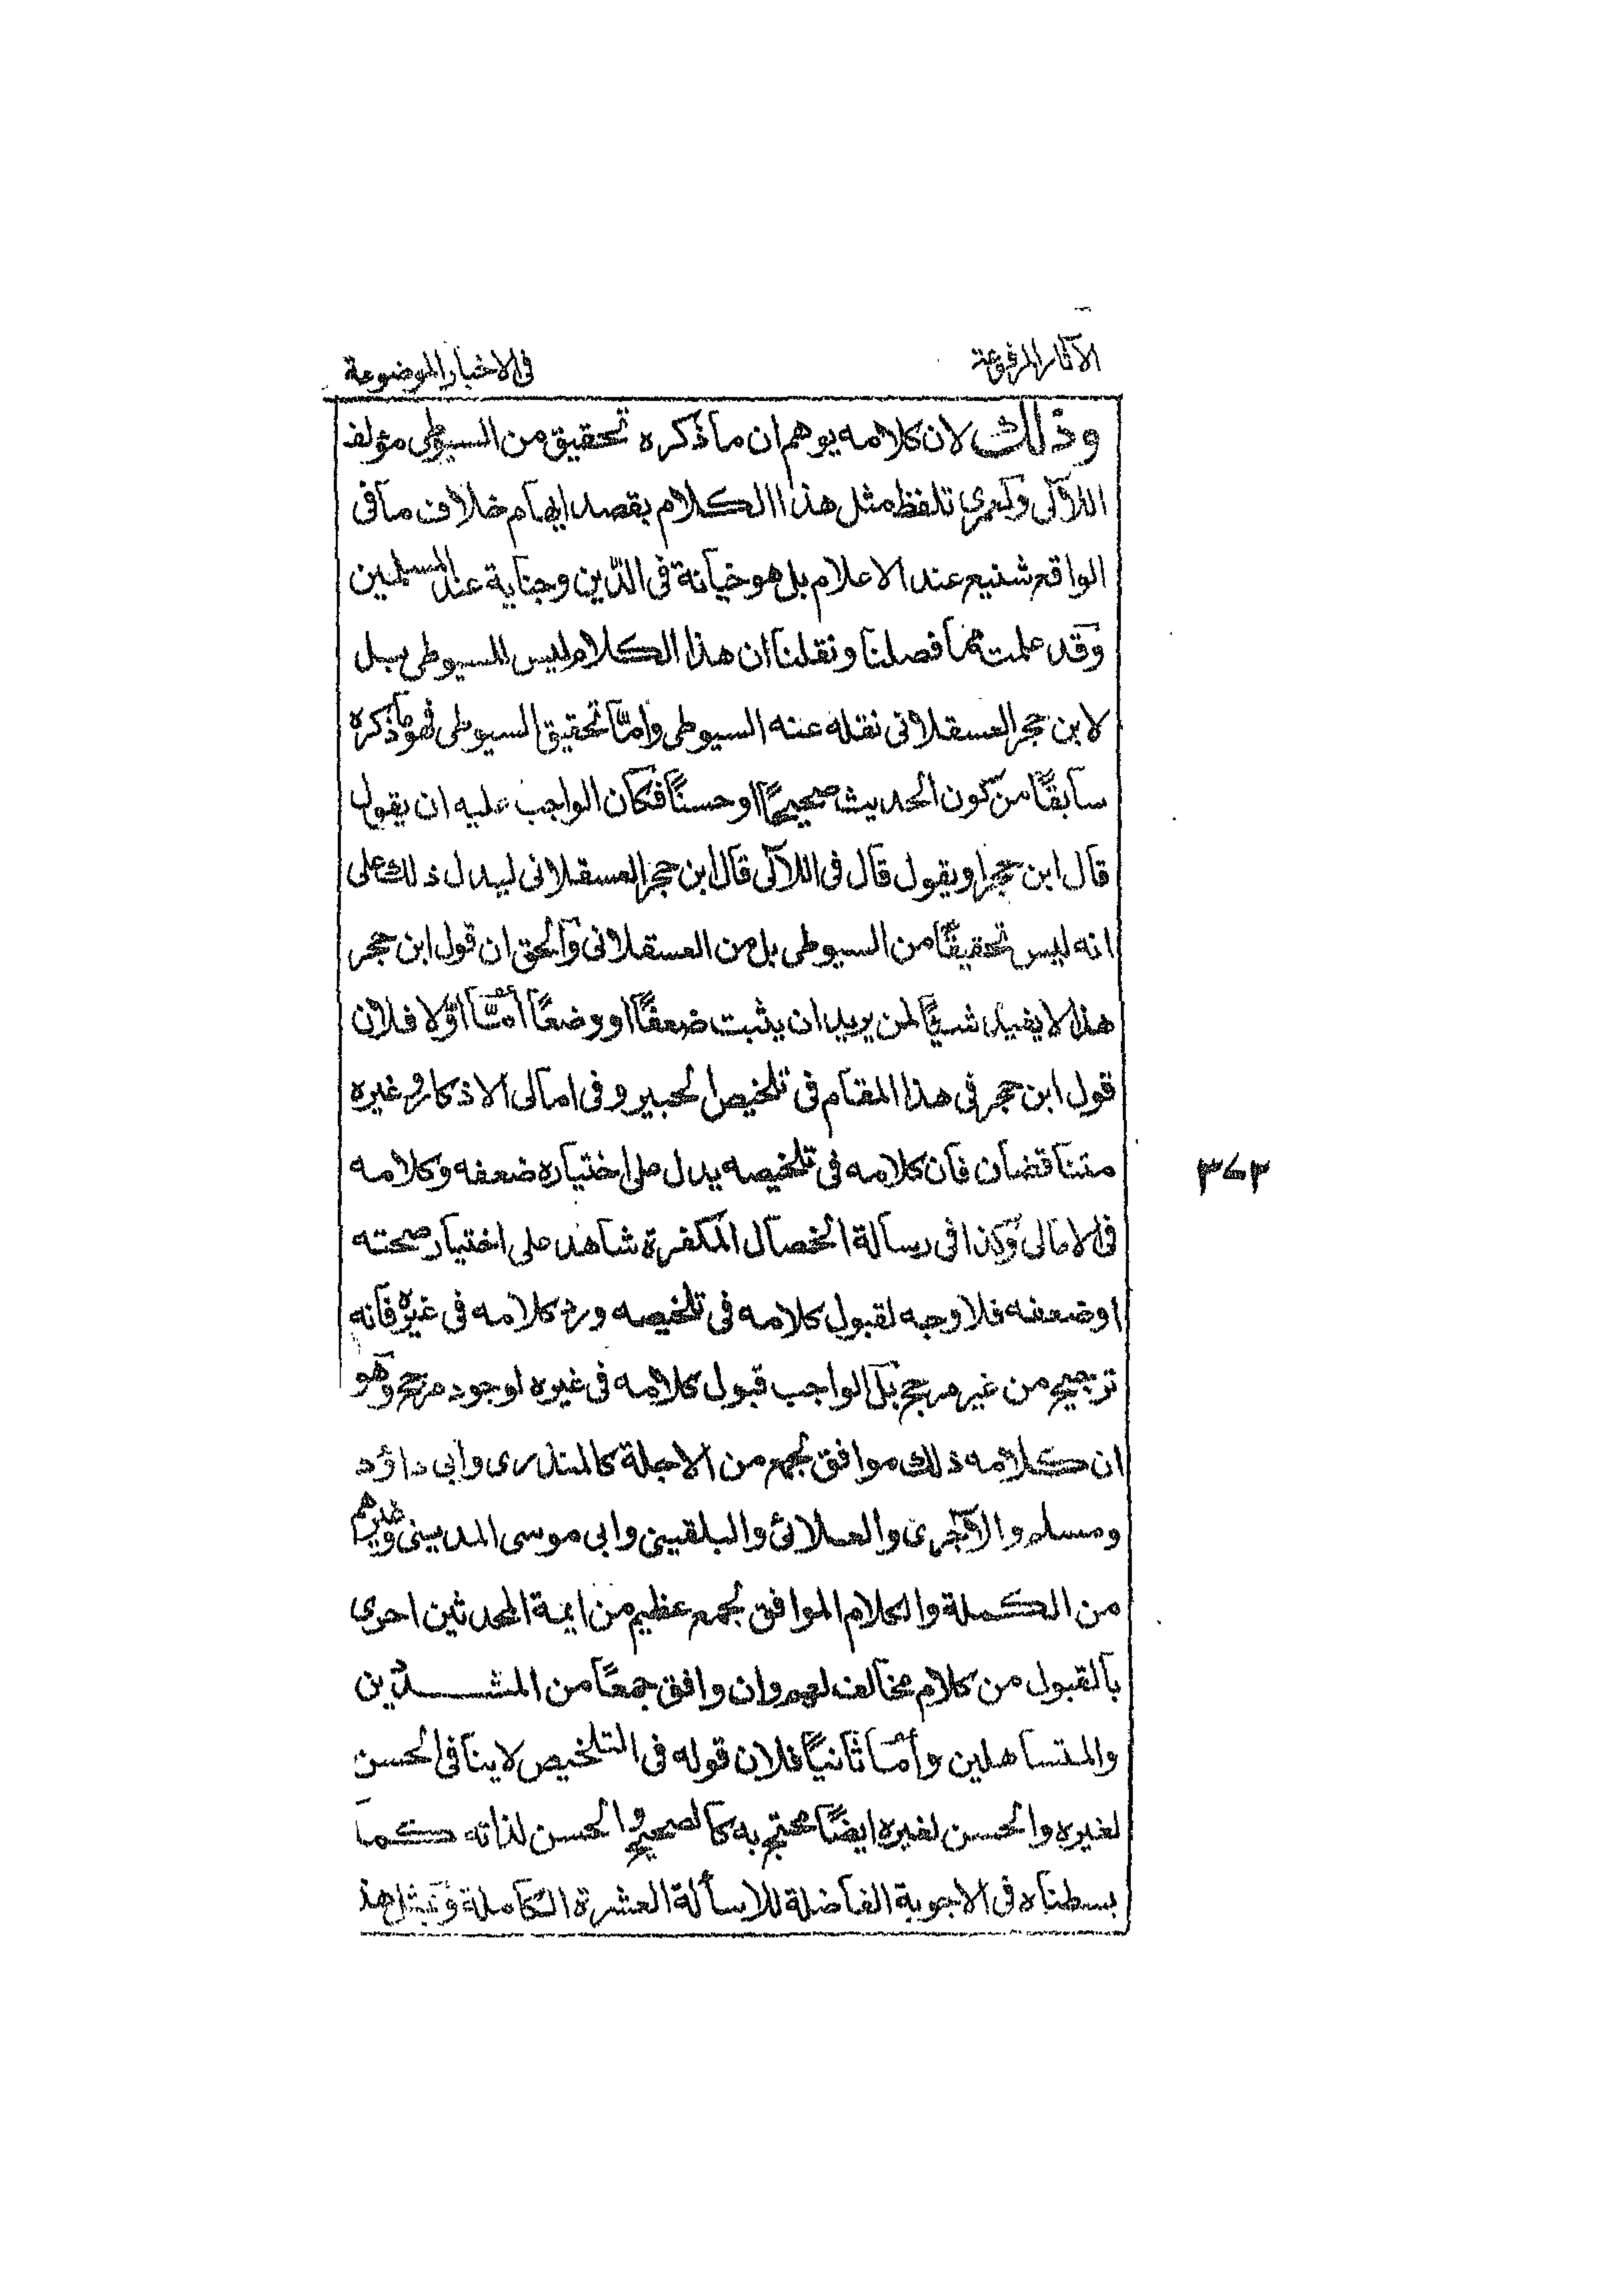 الآثار المرفوعة
فى الاخبار الموضوعة
وذلك لان كلامه يوهم ان ما ذكره تحقيق من السيوطى مؤلف
اللآلى ولعمرى تلفظ مثل هذا الكلام بقصد ايهام خلاف ما فى
الواقع شنيع عند الاعلام بل هو خيانة فى الدّين وجناية عند المسلمين
وقد علمت مما فصلنا ونقلنا ان هذا الكلام ليس للسيوطى بل
لابن حجر العسقلانى نقله عنه السيوطى وامّا تحقيق السيوطى فهو ما ذكره
سابقًا من كون الحديث صحيحًا او حسنًا فكان الواجب عليه ان يقول
قال ابن حجر او يقول قال فى اللآلى قال ابن حجر العسقلانى ليدل ذلك على
انه ليس تحقيقًا من السيوطى بل من العسقلانى والحق ان قول ابن حجر
هذا لا يفيد شيئًا لمن يريد ان يثبت ضعفًا او وضعًا أمّا اوّلا فلان
قول ابن حجر فى هذا المقام فى تلخيص الحبير وفى امالى الاذكار وغيره
متناقضان فان كلامه فى تلخيصه يدل على اختياره ضعفه وكلامه
فى الامالى وكذا فى رسالة الخصال المكفرة شاهد على اختيار صحته
او ضعفه فلا وجه لقبول كلامه فى تلخيصه ورد كلامه فى غيره فانه
ترجيح من غير مرجح بل الواجب قبول كلامه فى غيره لوجود مرجح وهو
ان كلامه ذلك موافق لجمع من الاجلة كالمنذرى وابى داؤد
ومسلم والآجرى والعلائى والبلقينى وابى موسى المدينى وغيرهم
من الكملة والكلام الموافق لجمع عظيم من ايمة المحدثين احرى
بالقبول من كلام مخالف لهم وان وافق جمعًا من المشدّدين
والمتساهلين وأمّا ثانيًا فلان قوله فى التلخيص لا ينافى الحسن
لغيره والحسن لغيره ايضًا محتج به كالصحيح والحسن لذاته كما
بسطناه فى الاجوبة الفاضلة للاسألة العشرة الكاملة وبمثل هذ
٣٧٣